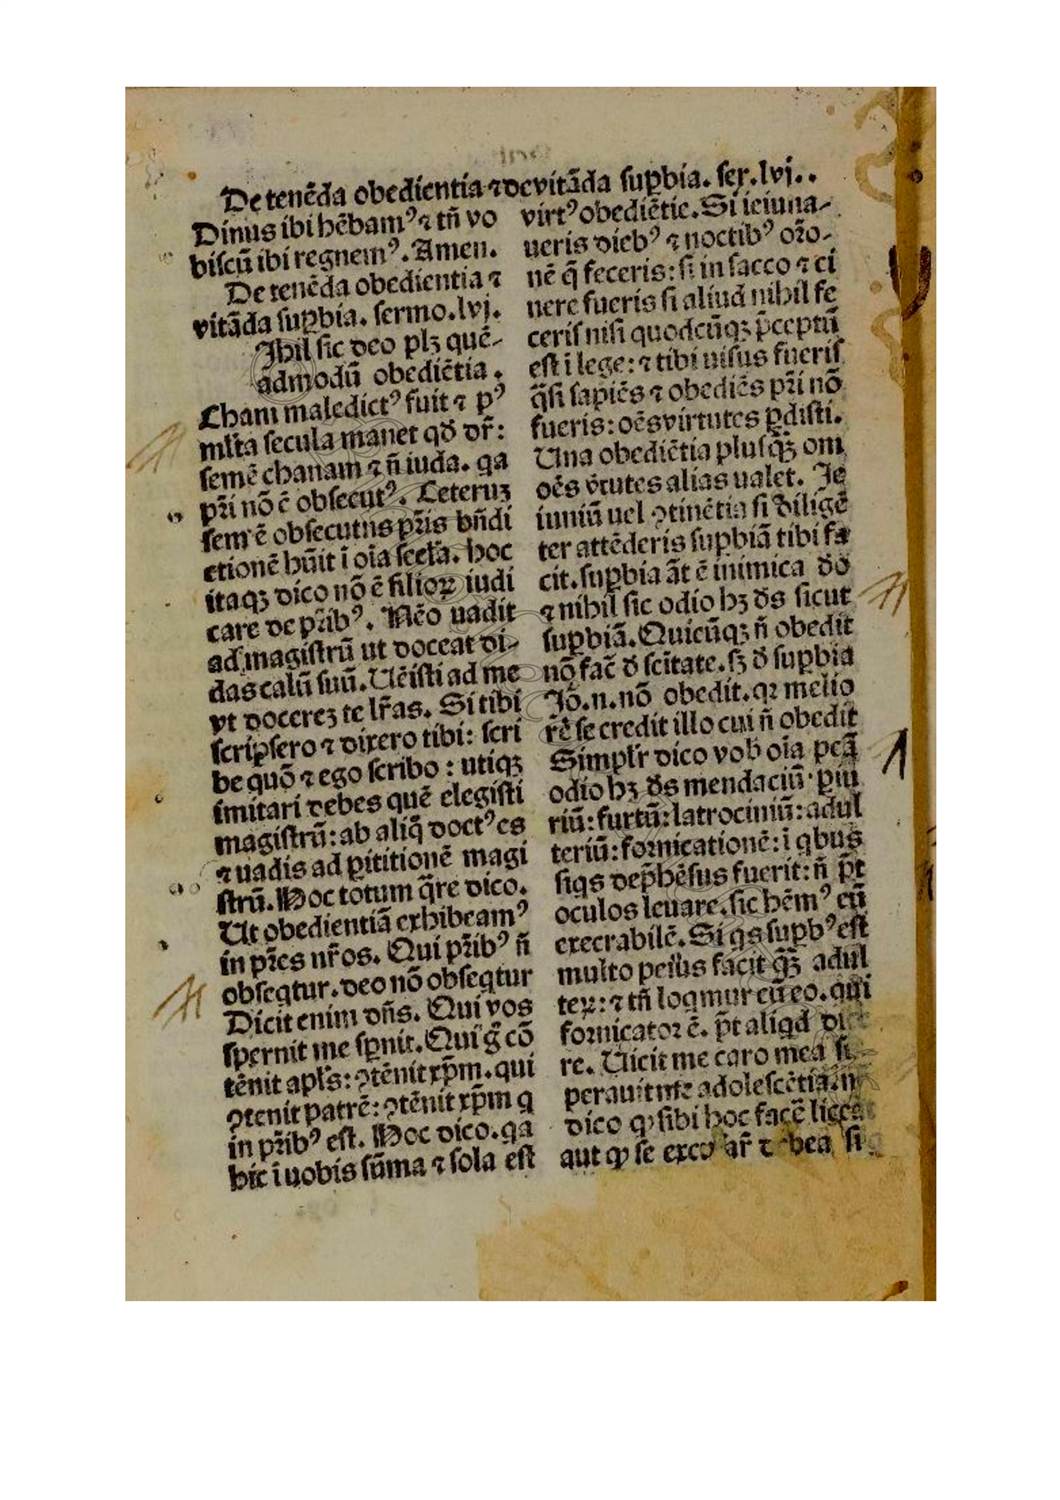 De tenēda obedientia ⁊ devitāda suꝑbia. ser. lvj..
Dinus ibi hēbamꝰ ⁊ tñ vo
biscū ibi regnemꝰ. Amen.
De tenēda obedientia ⁊
vitāda suꝑbia. sermo. lvj.
Ihil sic deo plꝫ quē-
admodū obediētia.
Cham maledictꝰ fuit ⁊ pꝰ
mlta secula manet qđ dr̄:
semē chanam ⁊ ñ iuda. qa
pr̄i nō ē obsecutꝰ. Ceteruꝫ
sem ē obsecutus pr̄is bñdi
ctionē hūit ī oīa secła. hoc
itaqꝫ dico nō ē filioꝝ iudi
care de pr̄ibꝰ. Nēo uadit
ad magistrū ut doceat di-
das calū suū. Uēisti ad me
vt docereꝫ te lr̄as. Si tibi
scripsero ⁊ dixero tibi: scri
be quō ⁊ ego scribo: utiqꝫ
imitari debes quē elegisti
magistrū: ab aliq̄ doctꝰ es
⁊ uadis ad ꝑititionē magi
strū. Hoc totum q̄re dico.
Ut obedientiā exhibeamꝰ
in pr̄es nr̄os. Qui pr̄ibꝰ ñ
obseqtur. deo nō obseqtur
Dicit enim dñs. Qui vos
spernit me sꝑnit. Qui g̊ cō
tēnit apłs: ꝯtēnit xp̄m. qui
ꝯtenit patrē: ꝯtēnit xp̄m q
in pr̄ibꝰ est. Hoc dico. qa
hic ī uobis sūma ⁊ sola est
virtꝰ obediētie. Si ieiuna-
ueris diebꝰ ⁊ noctibꝰ oro-
nē q̄ feceris: si in sacco ⁊ ci
nere fueris si aliud nihil fe
ceris nisi quodcūqꝫ p̄ceptū
est ī lege: ⁊ tibi uisus fueris
q̄si sapiēs ⁊ obediēs pr̄i nō
fueris: oēs virtutes ꝑdisti.
Una obediētia plusq̄ꝫ om
oēs v̄tutes alias ualet. Ie
iuniū uel ꝯtinētia si diligē
ter attēderis suꝑbiā tibi fa
cit. suꝑbia āt ē inimica dō
⁊ nihil sic odio hꝫ ds̄ sicut
suꝑbiā. Quicūqꝫ ñ obedit
nō fac̄ đ scītate. sꝫ đ suꝑbia
Iō. n. nō obedit. qꝛ melio
rē se credit illo cui ñ obedit
Simplr̄ dico vob oīa pcā
odio hꝫ ds̄ mendaciū. ꝑiu
riū: furtū: latrociniū: adul
teriū: fornicationē: ī qbus
siqs dep̄hēsus fuerit: ñ p̄t
oculos leuare. sic hēmꝰ cū
execrabilē. Si qs suꝑbꝰ est
multo peius facit q̄ꝫ adul
ter: ⁊ tñ loqmur cū eo. qui
fornicator ē. p̄t aliqd di
re. Uicit me caro mea
perauit me adolescētia.
dico ꝙ sibi hoc facē liceat
aut ꝙ se